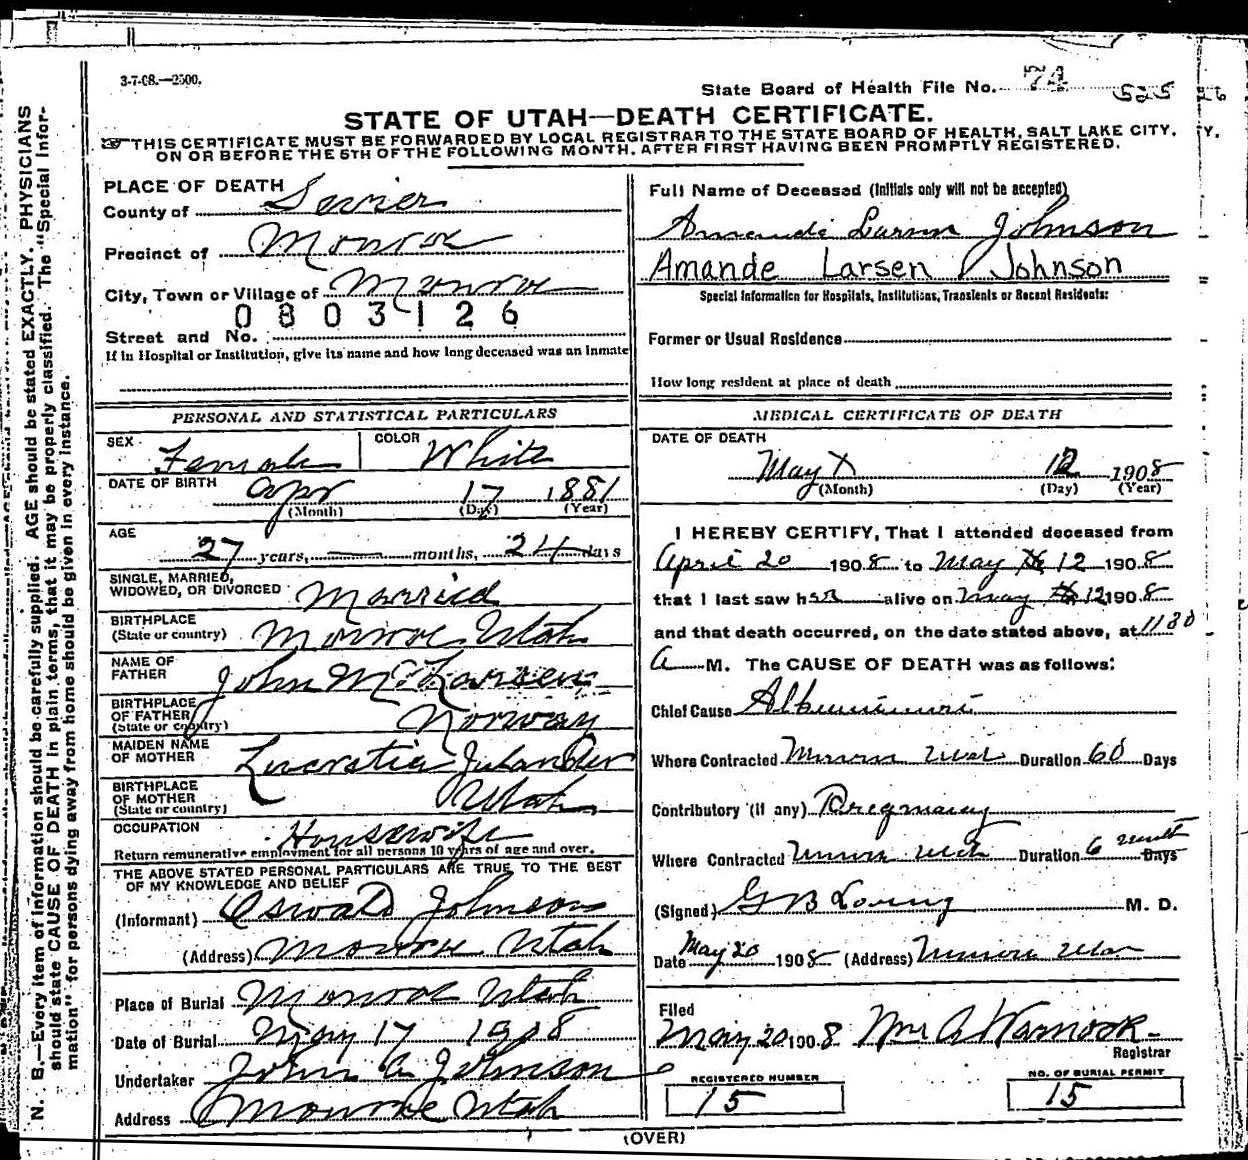 3-7-08.—2500.
State Board of Health File No. 74 525
STATE OF UTAH—DEATH CERTIFICATE.
THIS CERTIFICATE MUST BE FORWARDED BY LOCAL REGISTRAR TO THE STATE BOARD OF HEALTH, SALT LAKE CITY,
ON OR BEFORE THE 5TH OF THE FOLLOWING MONTH, AFTER FIRST HAVING BEEN PROMPTLY REGISTERED.
N. B.—Every item of information should be carefully supplied. AGE should be stated EXACTLY. PHYSICIANS
should state CAUSE OF DEATH in plain terms, that it may be properly classified. The "Special Infor-
mation" for persons dying away from home should be given in every instance.
PLACE OF DEATH
County of Sevier
Precinct of Monroe
City, Town or Village of Monroe
0803126
Street and No.
If in Hospital or Institution, give its name and how long deceased was an Inmate
PERSONAL AND STATISTICAL PARTICULARS
SEX Female COLOR White
DATE OF BIRTH Apr 17 1881
(Month) (Day) (Year)
AGE
27 years, — months, 24 days
SINGLE, MARRIED,
WIDOWED, OR DIVORCED Married
BIRTHPLACE
(State or country) Monroe Utah
NAME OF
FATHER John M. Larsen
BIRTHPLACE
OF FATHER
(State or country) Norway
MAIDEN NAME
OF MOTHER Lucretia Julander
BIRTHPLACE
OF MOTHER
(State or country) Utah
OCCUPATION Housewife
Return remunerative employment for all persons 10 years of age and over.
THE ABOVE STATED PERSONAL PARTICULARS ARE TRUE TO THE BEST
OF MY KNOWLEDGE AND BELIEF
(Informant) Oswald Johnson
(Address) Monroe Utah
Place of Burial Monroe Utah
Date of Burial May 17 1908
Undertaker John A Johnson
Address Monroe Utah
Full Name of Deceased (Initials only will not be accepted)
Amanda Larsen Johnson
Amande Larsen Johnson
Special Information for Hospitals, Institutions, Transients or Recent Residents:
Former or Usual Residence
How long resident at place of death
MEDICAL CERTIFICATE OF DEATH
DATE OF DEATH
May 12 1908
(Month) (Day) (Year)
I HEREBY CERTIFY, That I attended deceased from
April 20 1908 to May 12 1908
that I last saw her alive on May 12 1908
and that death occurred, on the date stated above, at 1130
A M. The CAUSE OF DEATH was as follows:
Chief Cause
Where Contracted Monroe Utah Duration 60 Days
Contributory (if any) Pregnancy
Where Contracted Monroe Utah Duration 6 Days
(Signed) G B Loving M. D.
Date May 20 1908 (Address) Monroe Utah
Filed
May 20 1908 Wm A Warnock
Registrar
REGISTERED NUMBER
15
NO. OF BURIAL PERMIT
15
(OVER)